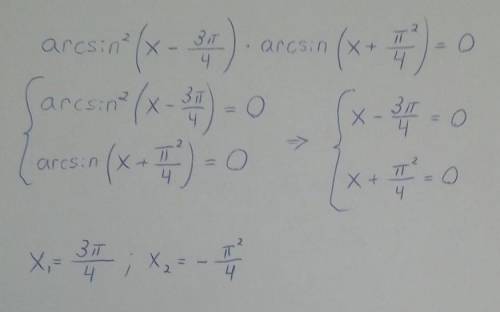 arcsin²(x − 3π/4) · arcsin(x + π²/4) = 0
{ arcsin²(x − 3π/4) = 0 ⇒ { x − 3π/4 = 0
arcsin(x + π²/4) = 0 x + π²/4 = 0
x₁ = 3π/4 ; x₂ = − π²/4